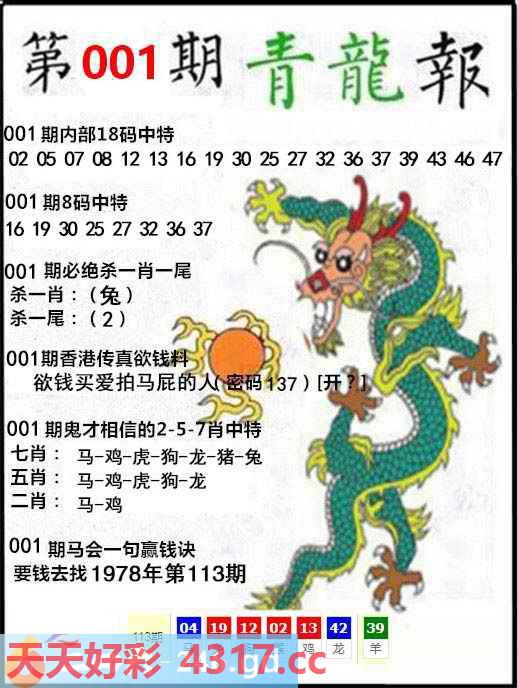 第001期青龍報
001期内部18码中特
02 05 07 08 12 13 16 19 30 25 27 32 36 37 39 43 46 47
001期8码中特
16 19 30 25 27 32 36 37
001期必绝杀一肖一尾
杀一肖：（兔）
杀一尾：（2）
001期香港传真欲钱料
欲钱买爱拍马屁的人（密码137）[开？]
001期鬼才相信的2-5-7肖中特
七肖： 马-鸡-虎-狗-龙-猪-兔
五肖： 马-鸡-虎-狗-龙
二肖： 马-鸡
001期马会一句赢钱诀
要钱去找1978年第113期
113期 04 19 12 02 13 42 39
鸡 龙 羊
天天好彩 4317.cc